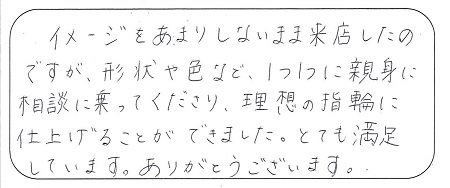 イメージをあまりしないまま来店したの
ですが、形状や色など、1つ1つに親身に
相談に乗ってくださり、理想の指輪に
仕上げることができました。とても満足
しています。ありがとうございます。